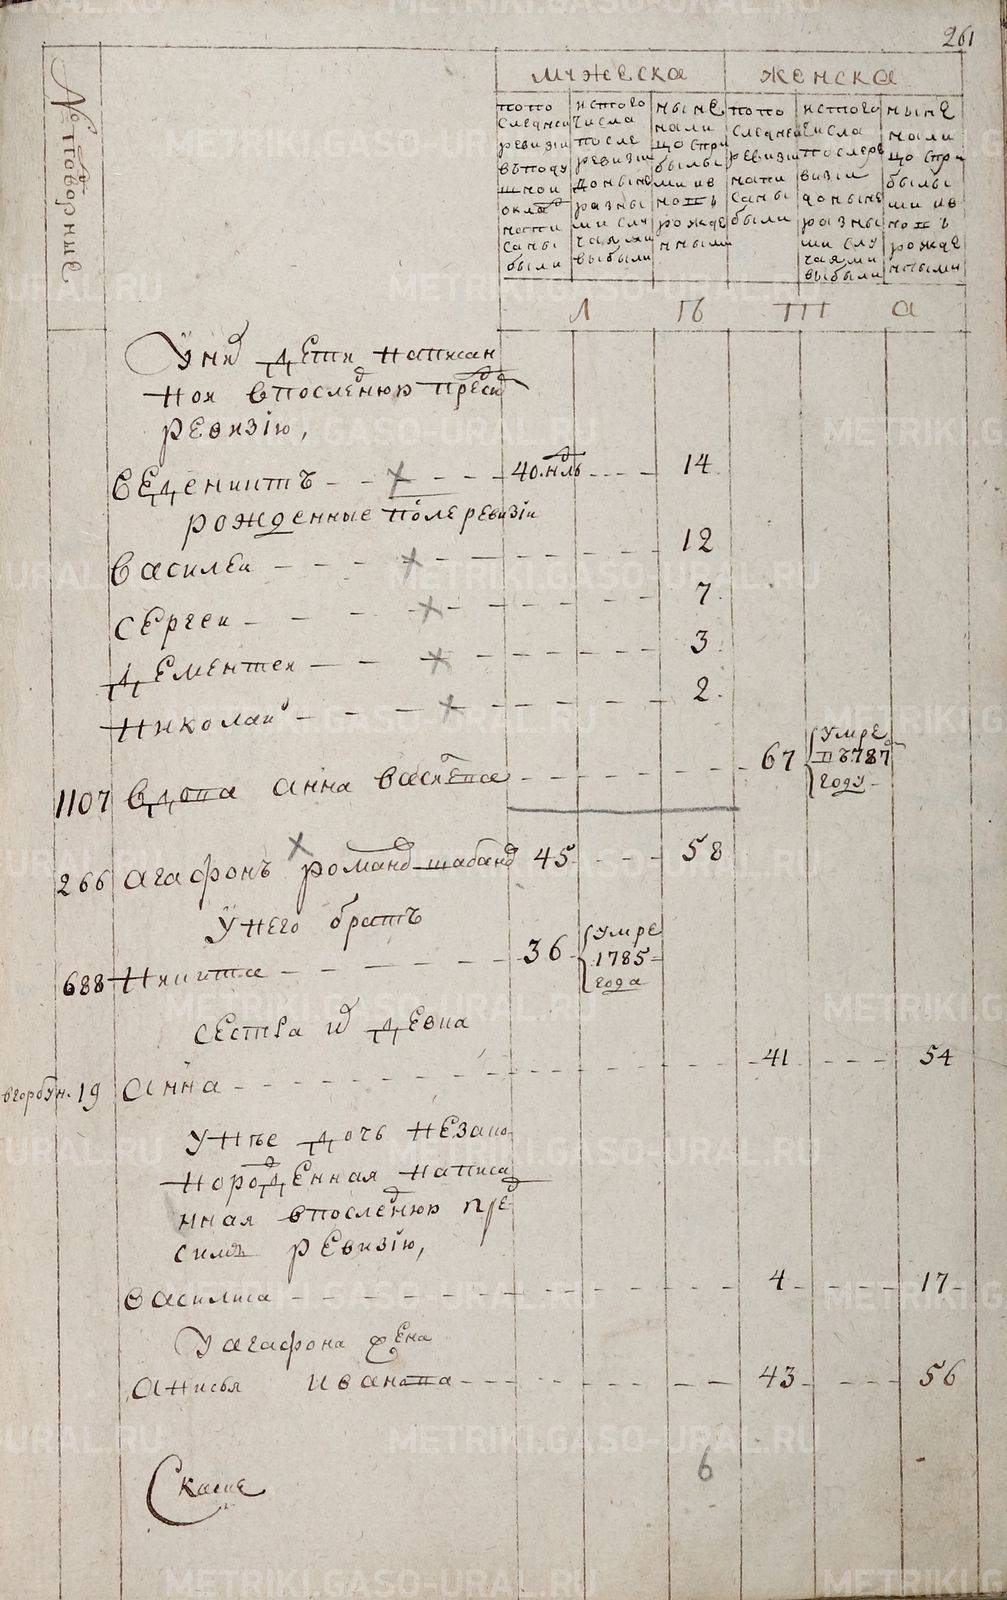 261
№ поворные
мужеска
женска
попо следнеи ревизии вподу шнои окла написаны были
исптого числа после ревизии доныне разны ми случаями выбыли
ныне нали цо спри былы ми ив новь рожде нными
попо следнеи ревизии напи саны были
исптого числа послере визии доныне разны ми слу чаями выбыли
ныне нали цо спри былы ми ив новь рожде нными
Л ТЪ Т А
У нид дети написан
ноя впоследнюю пред
ревизiю,
40. нль 14
рожденные после ревизiи
василеи 12
сергеи 7
дементеи 3
николаи 2
1107 вдова анна василева 67 умре въ 787 году
266 агафонъ романд шабанд 45 58
У него братъ
688 Никита 36 умре 1785 года
сестра ид девка
вгорбун. 19 анна 41 54
у нье дочь незако
норожденная написа
нная впоследнюю пре
ревизiю,
василиса 4 17
У агафона жена
анисья иванова 43 56
6
Скаске
METRIKI.GASO-URAL.RU